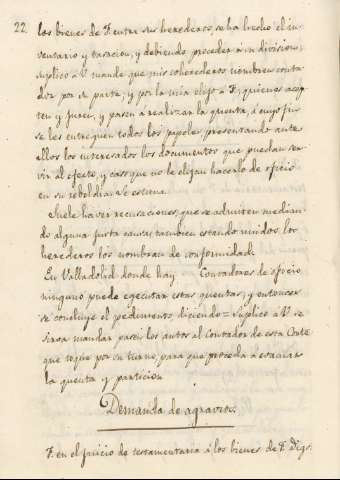 22.
los bienes de F. entre sus herederos, se ha hecho el in-
ventario y tasacion, y debiendo proceder a su division,
suplico a V. mande que mis coherederos nombren conta-
dor por su parte, y por la mia elijo a F., quienes acep-
ten y juren, y pasen a realizar la quenta, a cuyo fin
se les entreguen todos los papeles presentando ante
ellos los interesados los documentos que puedan ser-
vir al efecto, y caso que no le elijan hacerlo de oficio
en su rebeldia. Se estima.
Suele haver recusaciones, que se admiten median-
do alguna justa causa; tambien estando unidos los
herederos los nombran de conformidad.
En Valladolid donde hay Contadores de oficio
ninguno puede egecutar estas quentas, y entonces
se concluye el pedimento diciendo = Suplico a V. se
sirva mandar pasen los autos al Contador de esta Corte
que toque por su turno, para que proceda a
la quenta y particion
Demanda de agravios.
F. en el juicio de testamentaria a los bienes de F. Digo: